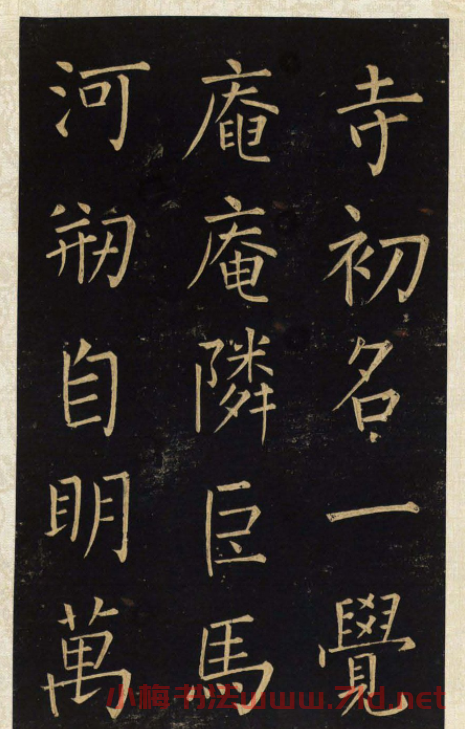 寺初名一覺
庵庵隣巨馬
河刱自明萬
小梅书法www.71d.net